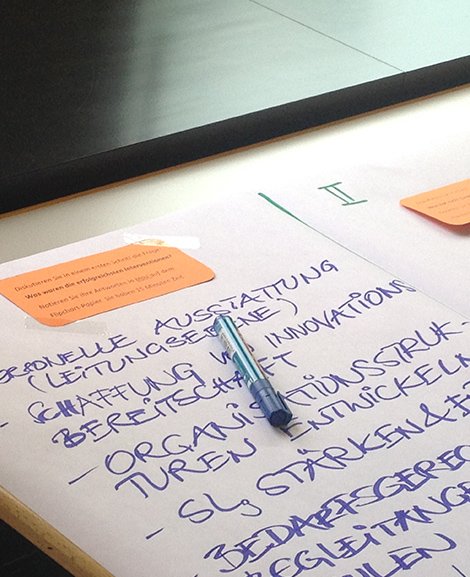 Diskutieren Sie in einem ersten Schritt die Frage:
Was waren die erfolgreichsten Interventionen?
Notieren Sie Ihre Antworten in blau auf dem
Flipchart-Papier. Sie haben 15 Minuten Zeit.
II
PERSONELLE AUSSTATTUNG
(LEITUNGSEBENE)
- SCHAFFUNG INNOVATIONS
BEREITSCHAFT
- ORGANISATIONSSTRUK-
TUREN ENTWICKELN
- SL, STÄRKEN & E
- BEDARFSGEREC
BEGLEITANGE